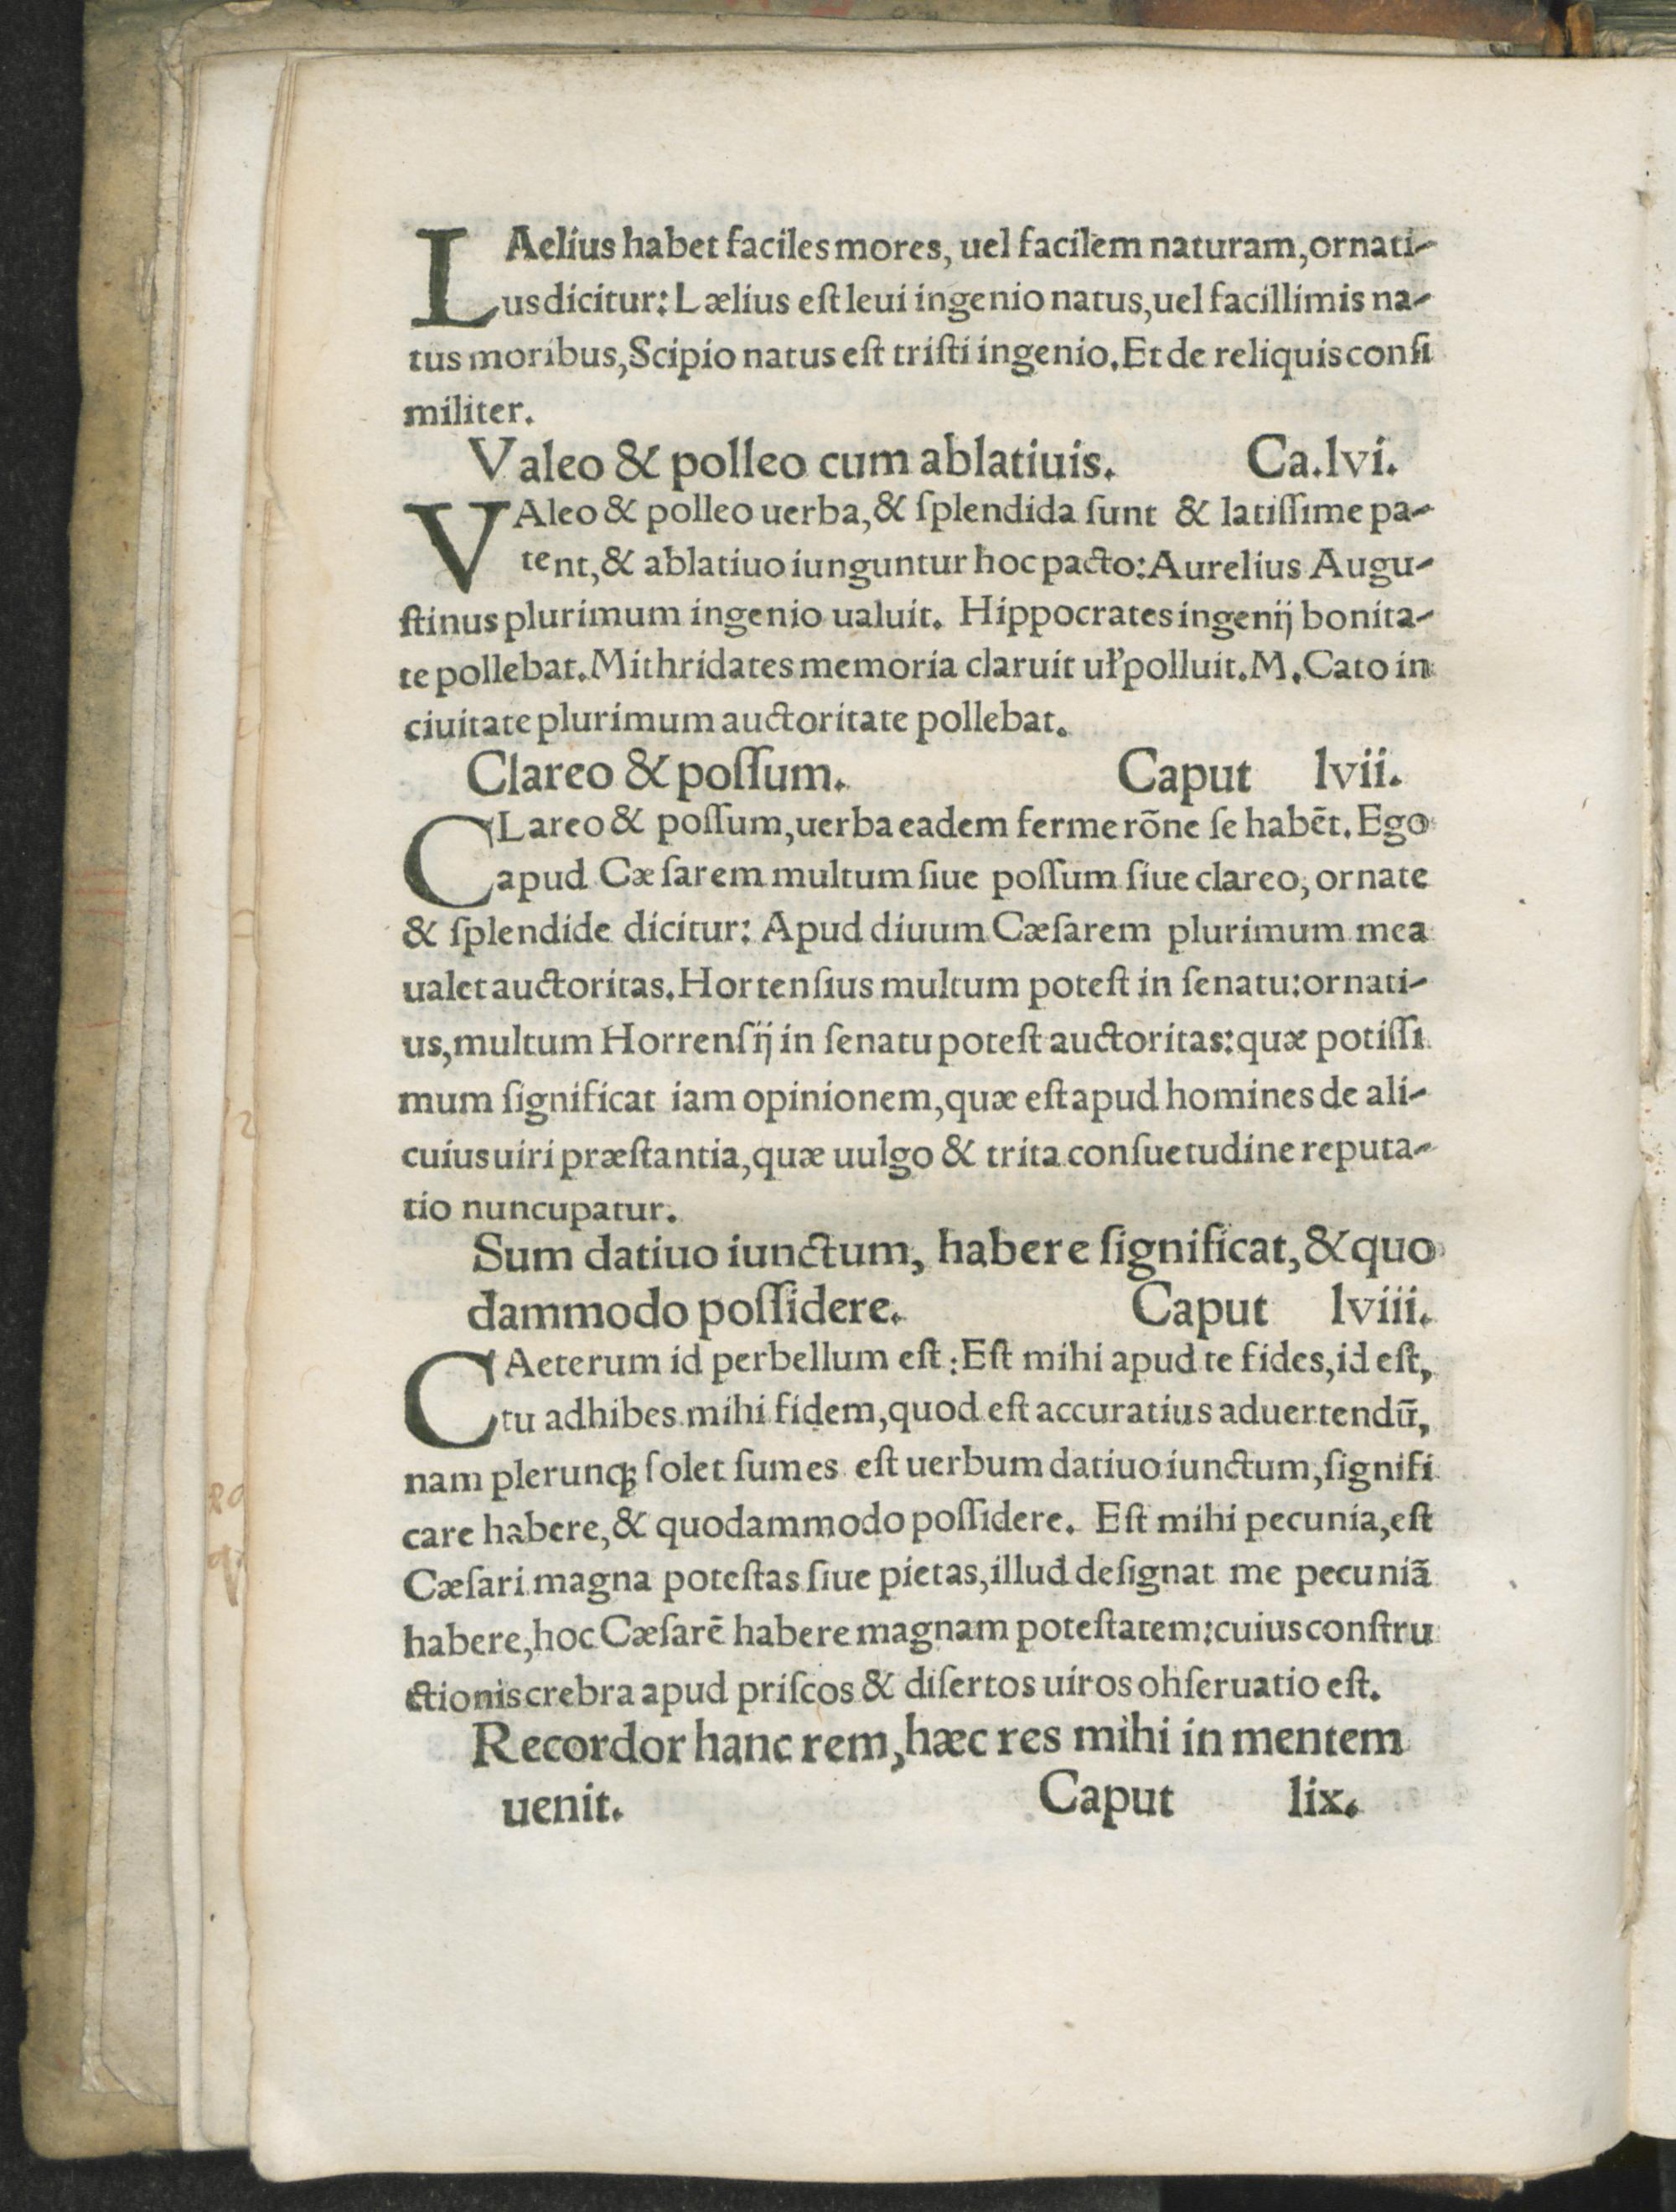 LAelius habet faciles mores, uel facilem naturam, ornati-
us dicitur: Lælius eſt leui ingenio natus, uel facillimis na-
tus moribus, Scipio natus eſt triſti ingenio. Et de reliquis conſi
militer.
Valeo & polleo cum ablatiuis. Ca.lvi.
VAleo & polleo uerba, & ſplendida ſunt & latiſſime pa-
tent, & ablatiuo iunguntur hoc pacto: Aurelius Augu-
ſtinus plurimum ingenio ualuit. Hippocrates ingenij bonita-
te pollebat. Mithridates memoria claruit uł polluit. M. Cato in
ciuitate plurimum auctoritate pollebat.
Clareo & poſſum. Caput lvii.
CLareo & poſſum, uerba eadem ferme rõne ſe habēt. Ego
apud Cæſarem multum ſiue poſſum ſiue clareo, ornate
& ſplendide dicitur: Apud diuum Cæſarem plurimum mea
ualet auctoritas. Hortenſius multum poteſt in ſenatu: ornati-
us, multum Horrenſij in ſenatu poteſt auctoritas: quæ potiſſi
mum ſignificat iam opinionem, quæ eſt apud homines de ali-
cuius uiri præſtantia, quæ uulgo & trita conſuetudine reputa-
tio nuncupatur.
Sum datiuo iunctum, habere ſignificat, & quo
dammodo poſſidere. Caput lviii.
CAeterum id perbellum eſt: Eſt mihi apud te fides, id eſt,
tu adhibes mihi fidem, quod eſt accuratius aduertendū,
nam plerunqꝫ ſolet ſum es eſt uerbum datiuo iunctum, ſignifi
care habere, & quodammodo poſſidere. Eſt mihi pecunia, eſt
Cæſari magna poteſtas ſiue pietas, illud deſignat me pecuniā
habere, hoc Cæſarē habere magnam poteſtatem: cuius conſtru
ctionis crebra apud priſcos & diſertos uiros ohſeruatio eſt.
Recordor hanc rem, hæc res mihi in mentem
uenit. Caput lix.